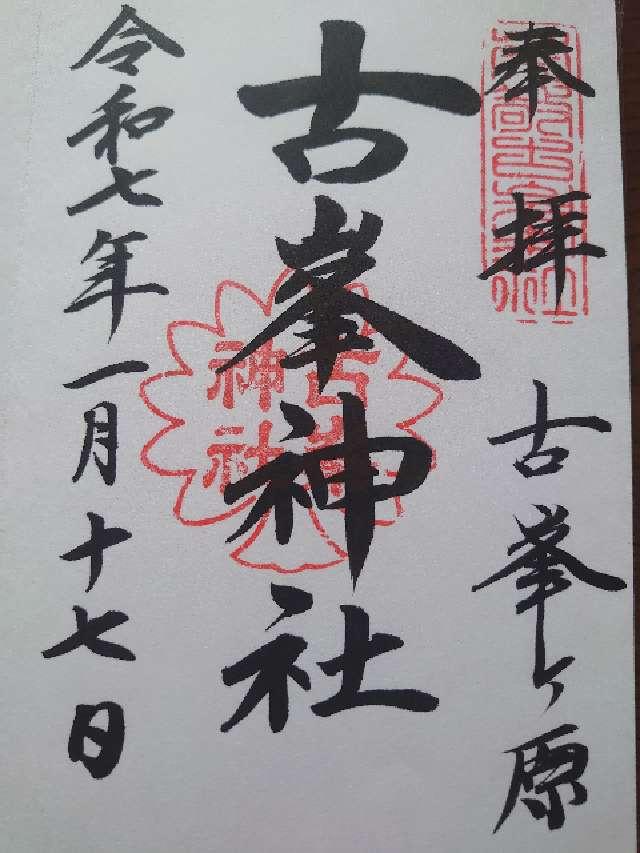 奉拝
古峯ヶ原
古峯神社
古峯神社
令和七年一月十七日